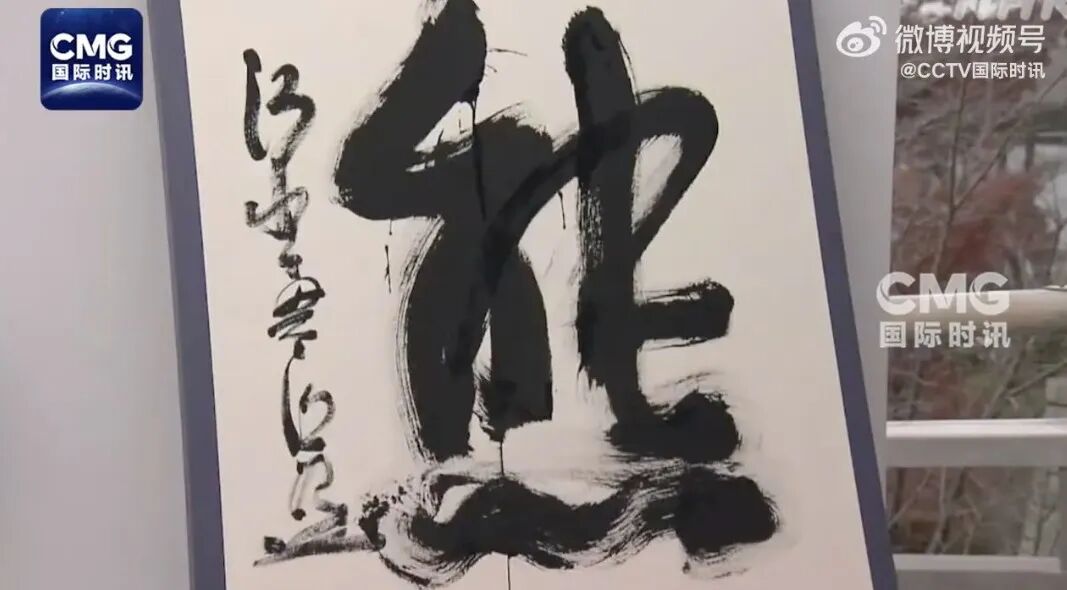 CMG
国际时讯
微博视频号
@CCTV国际时讯
熊
CMG
国际时讯